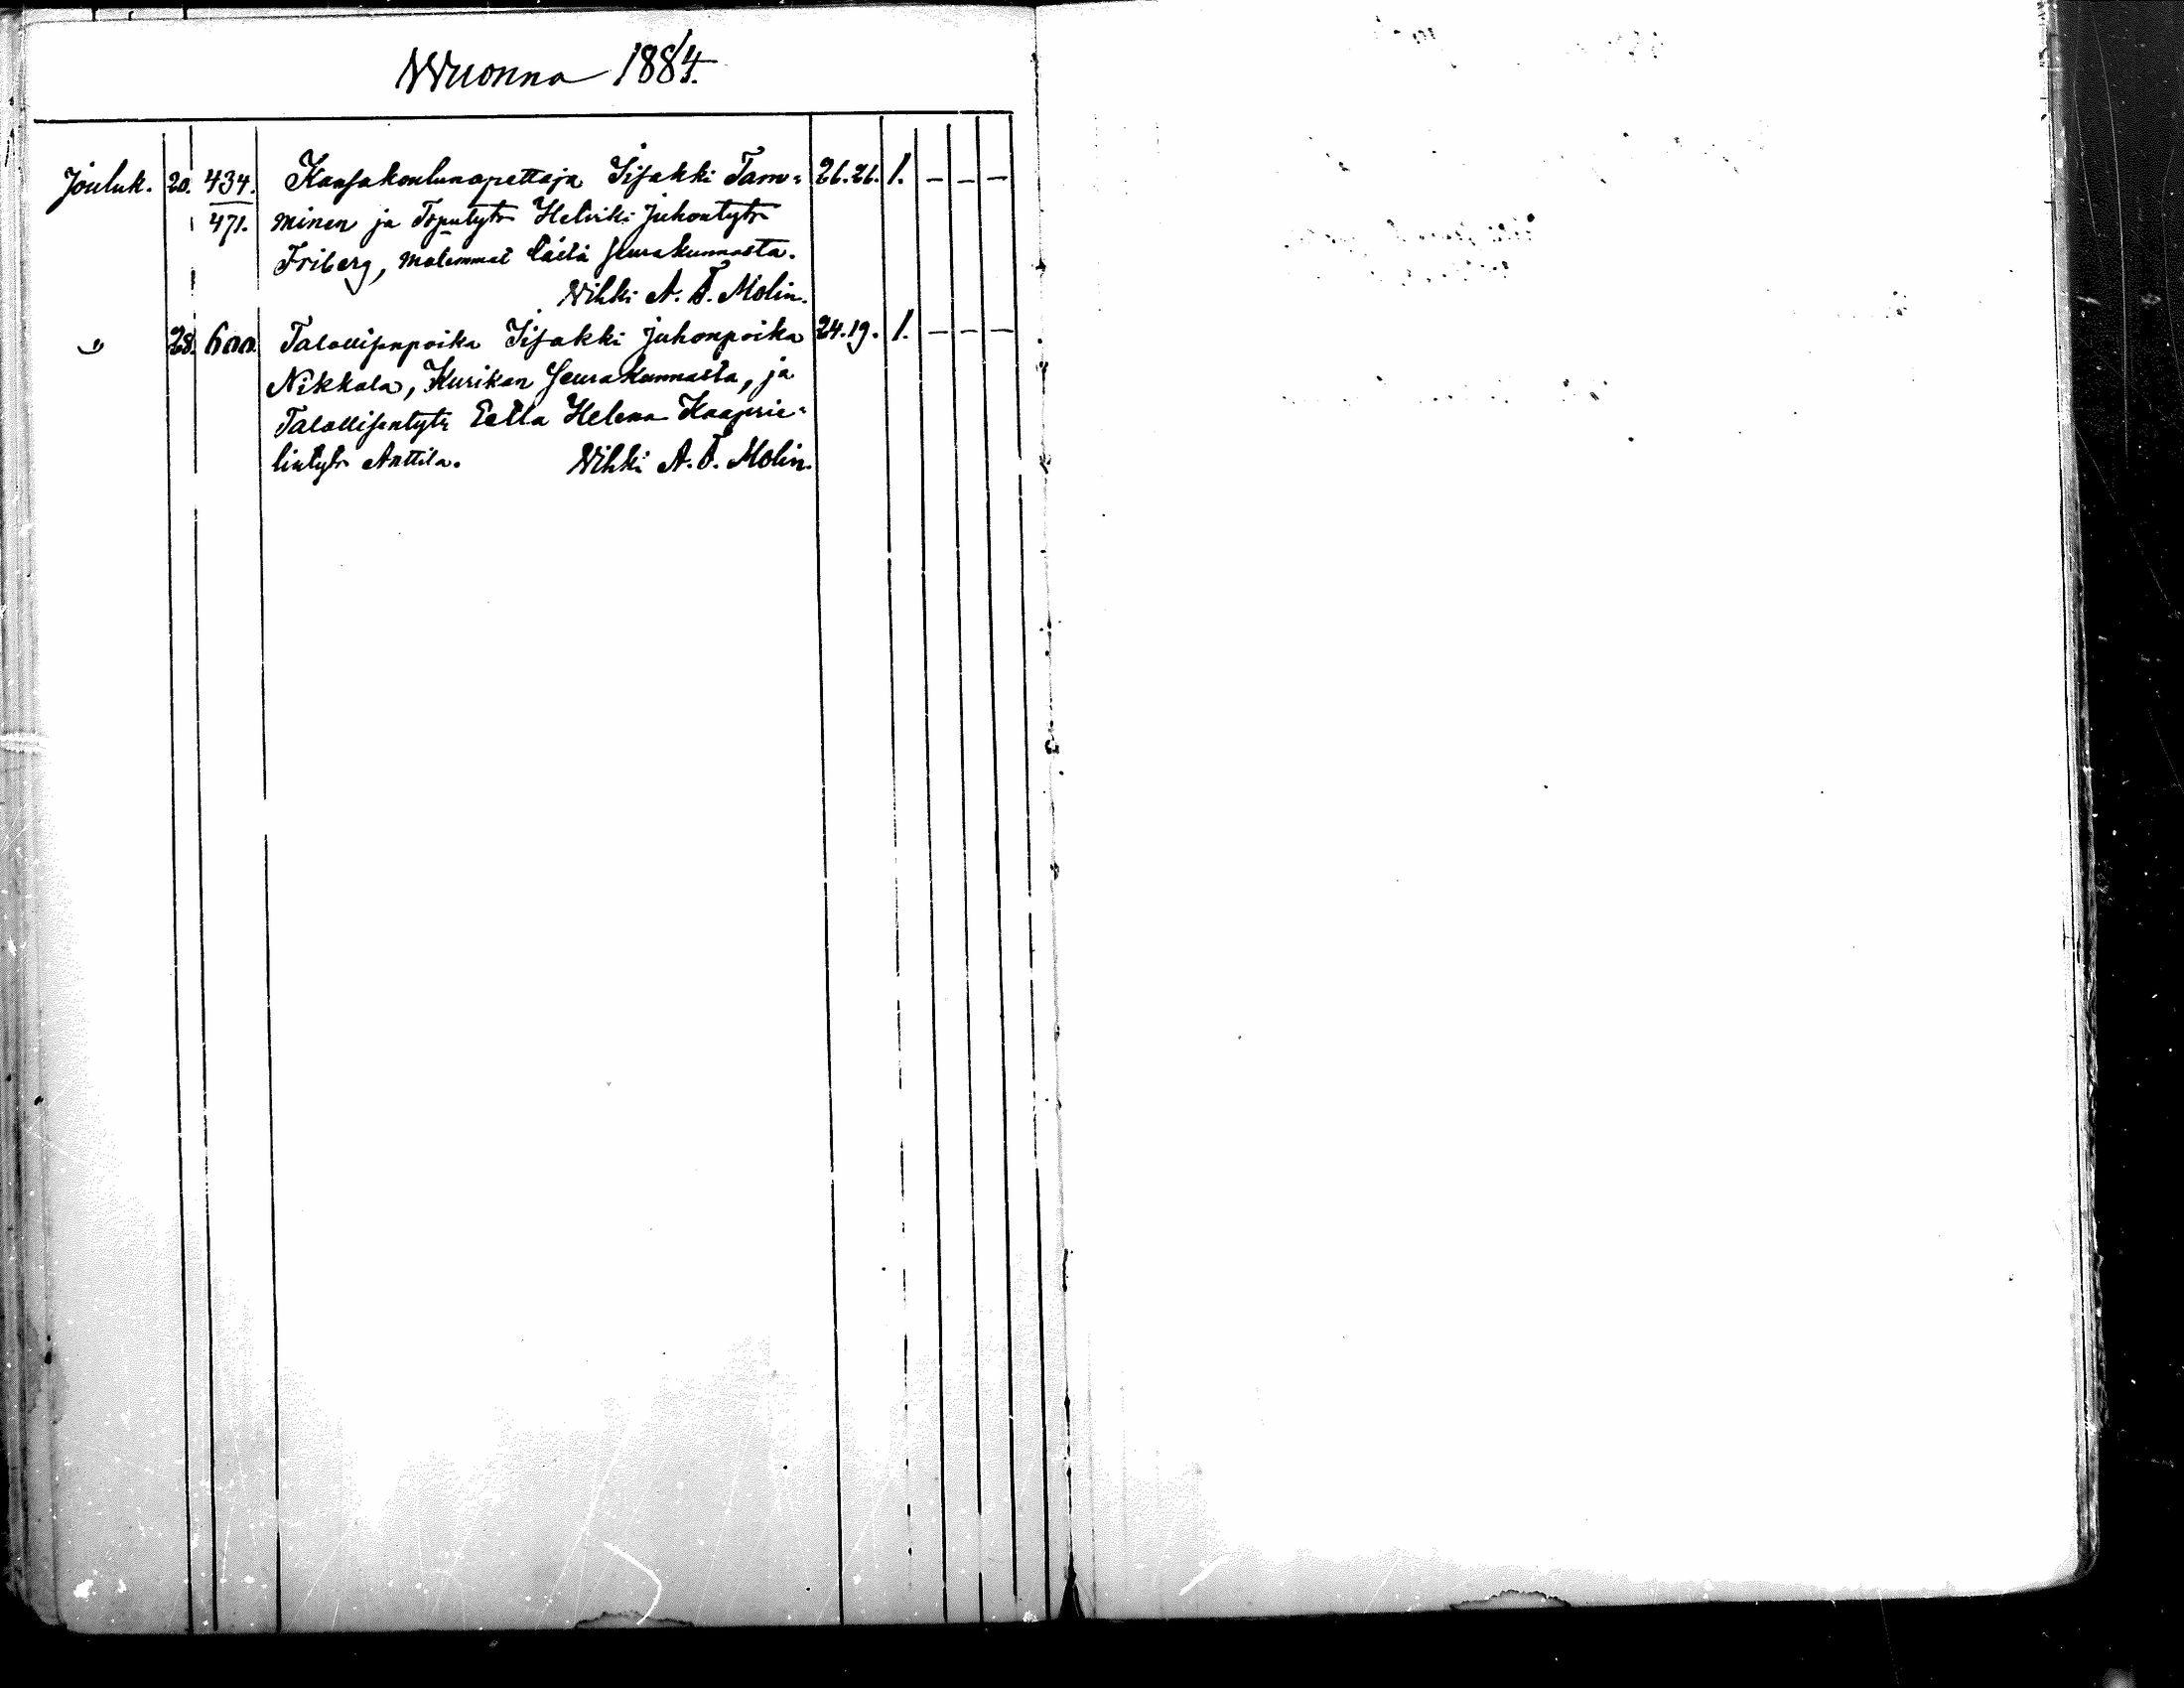 Wuonna 1884.
Jouluk. 20. 434. Kansakoulunopettaja Iisakki Tam= 26. 26. 1. — — —
471. minen ja Toputytr Helviki Juhontytr
Friberg, molemmat tästä seurakunnasta.
Wihki A. F. Molin.
" 28. 600. Talollisenpoika Iisakki Juhonpoika 24. 19. 1. — — —
Nikkola, Kurikan seurakunnasta, ja
Talollisentytr Eetla Helena Kaaprie=
lintytr Anttila. Wihki A. F. Molin.